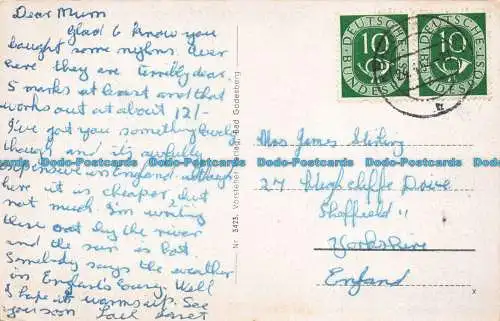 Dear Mum
Glad to know you
bought some nylons. Over
here they are terribly dear.
5 marks at least and that
works out at about 12/-
I've got you something lovely
though and it's awfully
expensive in England although
here it is cheaper, but
not much. I'm writing
these out by the river
and the sun is hot.
Somebody says the weather
in England's lousy. Well
I hope it warms up. See
you soon
Nr. 3423. Vorsteher Verlag, Bad Godesberg
DEUTSCHE BUNDESPOST
10
DEUTSCHE BUNDESPOST
10
Mrs James Stirling
27 Highcliffe Drive
Sheffield 11
Yorkshire
England
x
Dodo-Postcards Dodo-Postcards Dodo-Postcards Dodo-Postcards